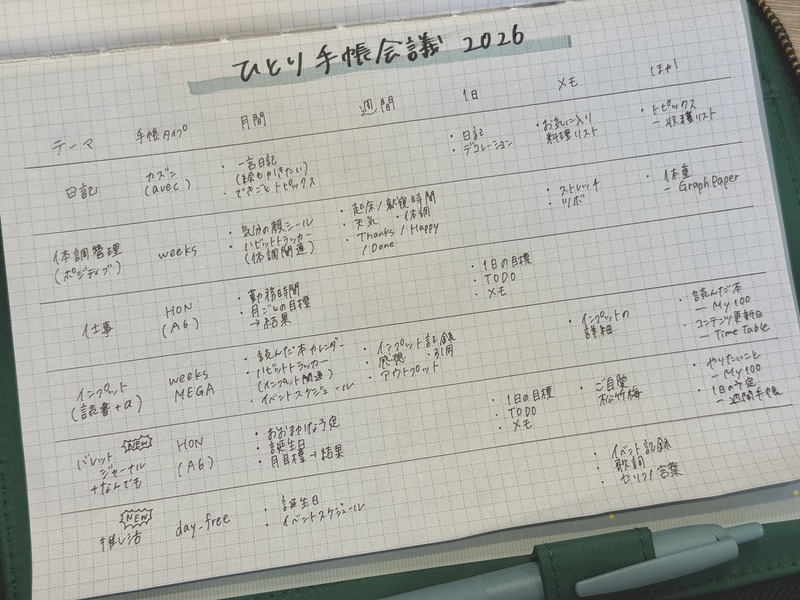 ひとり手帳会議 2026
テーマ 手帳タイプ 月間 週間 1日 メモ ほか
日記
カズン
(avec)
・一言日記
(絵もかきたい)
・できごとトピックス
・日記
・デコレーション
・お気に入り
料理リスト
・トピックス
― 収穫リスト
体調管理
(ポジティブ)
weeks
・気分の顔シール
・ハビットトラッカー
(体調関連)
・起床/就寝時間
・天気 ・体調
・Thanks / Happy
/ Done
・ストレッチ
・ツボ
・体重
― Graph Paper
仕事
HON
(A6)
・勤務時間
・月ごとの目標
→結果
・1日の目標
・TODO
・メモ
インプット
(読書+α)
weeks
MEGA
・読んだ本カレンダー
・ハビットトラッカー
(インプット関連)
・イベントスケジュール
・インプット記録
・感想 ・引用
・アウトプット
・インプットの
詳細
・読んだ本
― My 100
・コンテンツ更新日
― Time Table
バレット NEW
ジャーナル
+なんでも
HON
(A6)
・おおまかな予定
・誕生日
・月目標→結果
・1日の目標
・TODO
・メモ
・ご自愛
松竹梅
・やりたいこと
― My 100
・1日の予定
― 週間手帳
NEW
推し活
day-free
・誕生日
・イベントスケジュール
・イベント記録
・歌詞
・セリフ/言葉